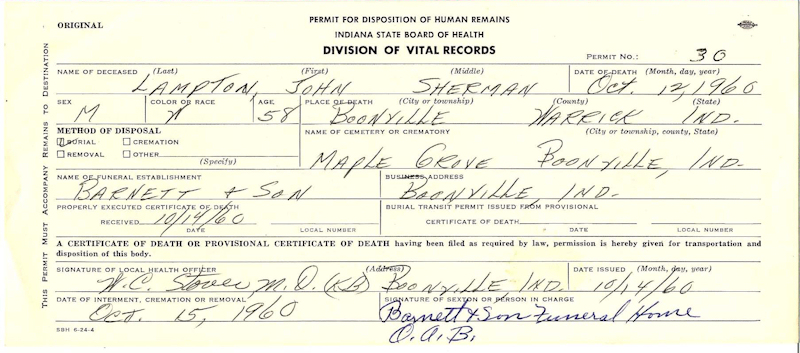 ORIGINAL
PERMIT FOR DISPOSITION OF HUMAN REMAINS
INDIANA STATE BOARD OF HEALTH
DIVISION OF VITAL RECORDS
PERMIT NO.: 30
THIS PERMIT MUST ACCOMPANY REMAINS TO DESTINATION
NAME OF DECEASED (Last) (First) (Middle) DATE OF DEATH (Month, day, year)
LAMPTON, JOHN SHERMAN Oct. 12, 1960
SEX COLOR OR RACE AGE PLACE OF DEATH (City or township) (County) (State)
M W 58 BOONVILLE WARRICK IND.
METHOD OF DISPOSAL NAME OF CEMETERY OR CREMATORY (City or township, county, State)
BURIAL CREMATION
REMOVAL OTHER
(Specify)
MAPLE GROVE BOONVILLE, IND.
NAME OF FUNERAL ESTABLISHMENT BUSINESS ADDRESS
BARNETT + SON BOONVILLE, IND.
PROPERLY EXECUTED CERTIFICATE OF DEATH BURIAL TRANSIT PERMIT ISSUED FROM PROVISIONAL
RECEIVED 10/14/60 CERTIFICATE OF DEATH
DATE LOCAL NUMBER DATE LOCAL NUMBER
A CERTIFICATE OF DEATH OR PROVISIONAL CERTIFICATE OF DEATH having been filed as required by law, permission is hereby given for transportation and
disposition of this body.
SIGNATURE OF LOCAL HEALTH OFFICER (Address) DATE ISSUED (Month, day, year)
W.C. M.D. (KB) BOONVILLE IND. 10/14/60
DATE OF INTERMENT, CREMATION OR REMOVAL SIGNATURE OF SEXTON OR PERSON IN CHARGE
Oct. 15, 1960 Barnett & Son Funeral Home
O.A.B.
SBH 6-24-4